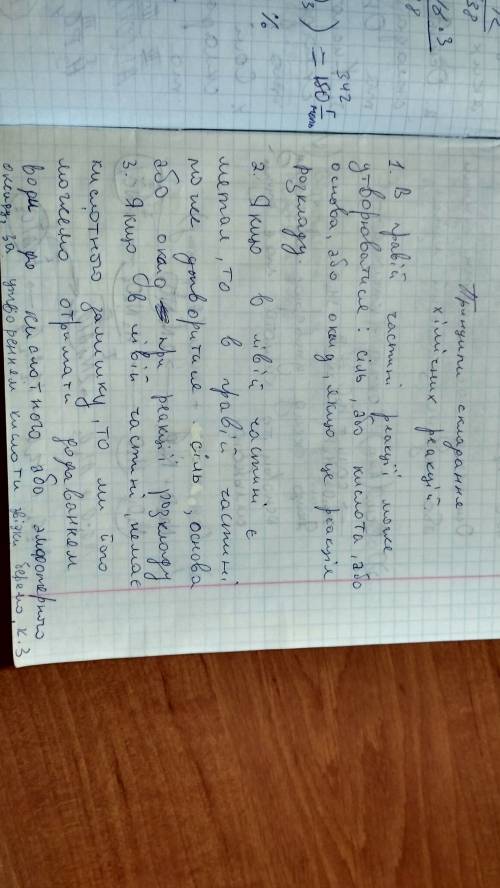 Принципи складання
хімічних реакцій.
1. В правій частині реакції може
утворюватися: сіль, або кислота, або
основа, або оксид, якщо це реакція
розкладу.
2. Якщо в лівій частині є
метал, то в правій частині
може утворитися сіль, основа
або оксид при реакції розкладу
3. Якщо в лівій частині немає
кислотного залишку, то ми його
можемо отримати додаванням
води до кислотного або амфотерного
оксиду, за утворенням кислоти звідки беремо, к.з
18.3
38
8
) = 180 г/моль
342
%